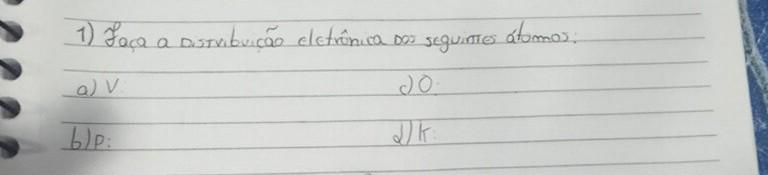 1) Faça a Distribuição eletrônica dos seguintes átomos:
a) V: c) O:
b) P: d) K: